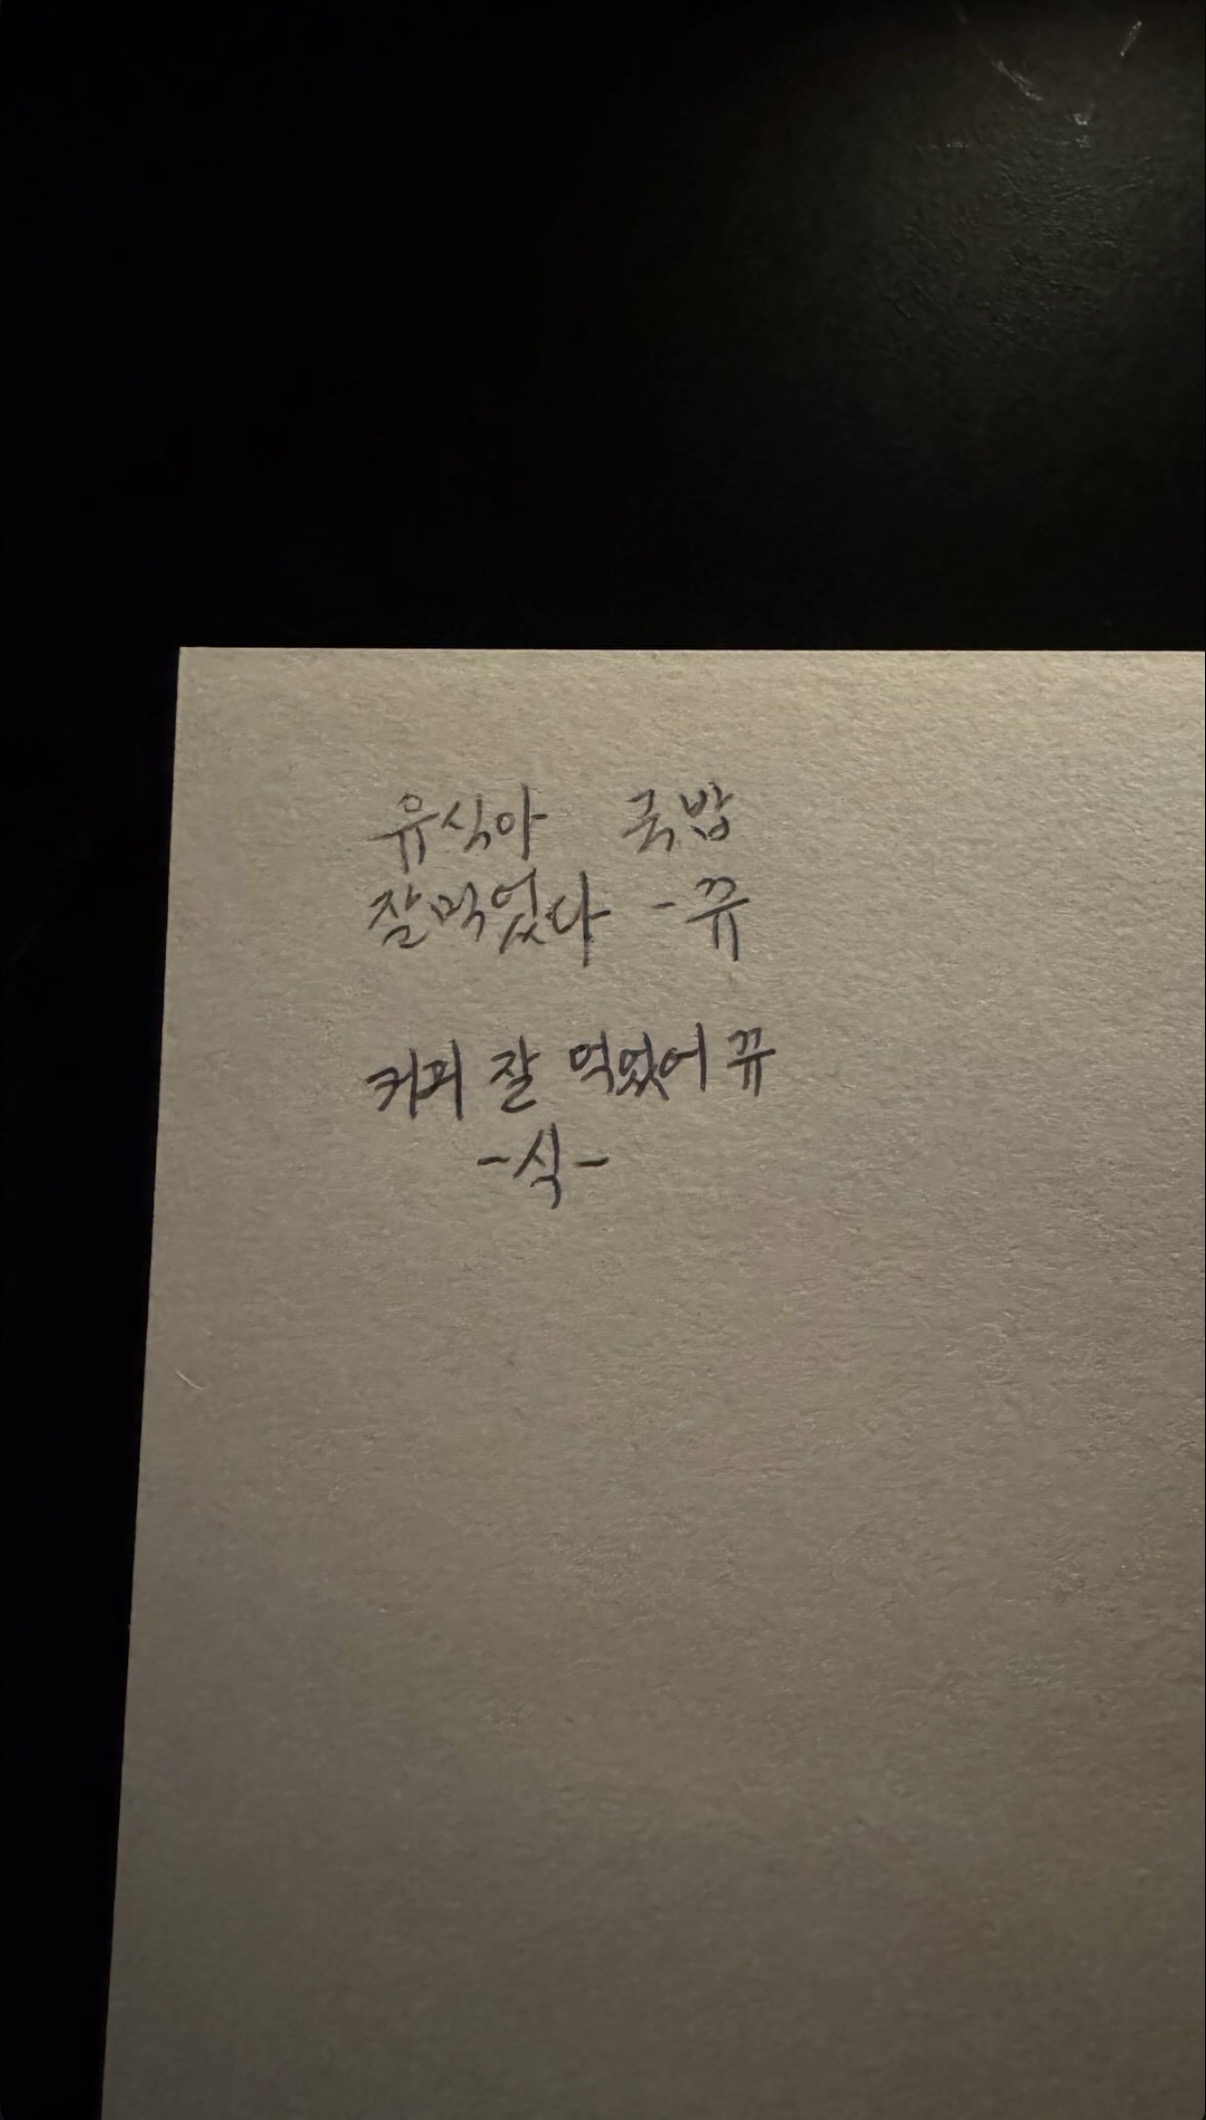 유식아 국밥
잘먹었다 -뀨
커피 잘 먹었어 뀨
-식-